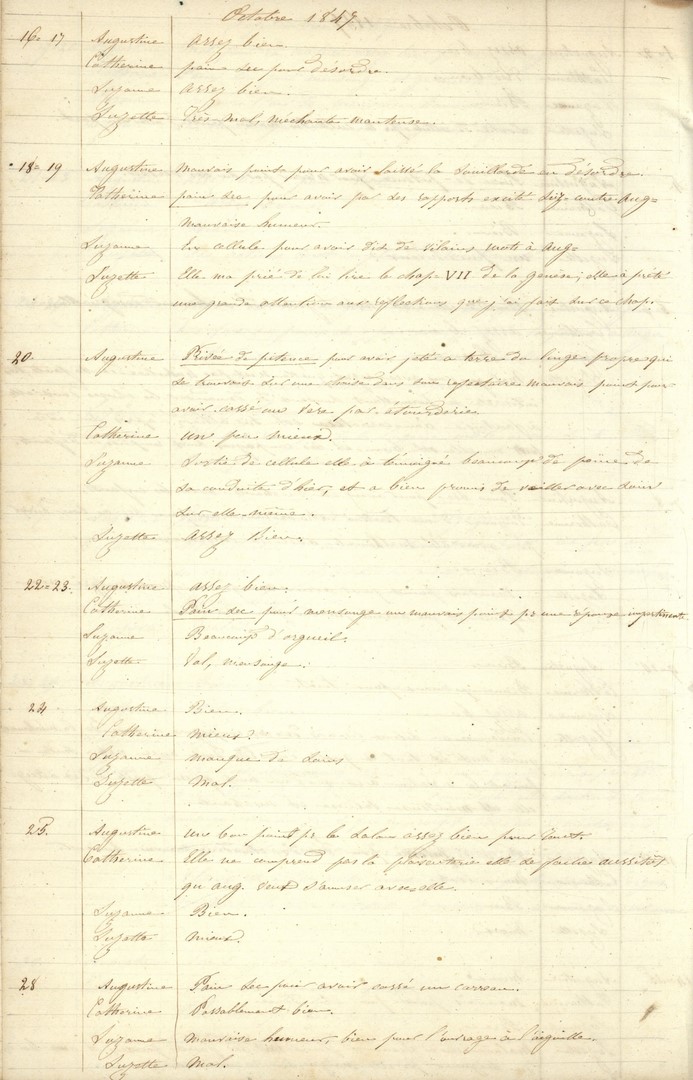 Octobre 1847
16 = 17 Augustine assez bien.
Catherine pain sec pour désordre.
Suzanne assez bien.
Suzette Très mal, méchante menteuse.
18 = 19 Augustine mauvais point pour avoir laissé la souillarde en désordre.
Catherine pain sec pour avoir par ses rapports excité Suz= contre Aug=
mauvaise humeur.
Suzanne En cellule pour avoir dit de vilains mots à Aug=
Suzette Elle ma prié de lui lire le chap. VII de la genèse; elle à prété
une grande attention aux reflections que j'ai fait sur ce chap.
20 Augustine Privée de pitence pour avoir jeté a terre du linge propre qui
se trouvait sur une chaise dans son refectoire mauvais point pour
avoir cassé un vère par étourderie.
Catherine un peu mieux.
Suzanne Sortie de cellule elle à témoigné beaucoup de peine de
sa conduite d'hier, et a bien promis de veiller avec soin
sur elle-même.
Suzette assez Bien.
22 = 23. Augustine assez bien.
Catherine Pain sec pour mensonge un mauvais point pr une réponse impertinent.
Suzanne Beaucoup d'orgueil.
Suzette Vol, mensonge.
24 Augustine Bien.
Catherine mieux?
Suzanne manque de soins
Suzette Mal.
25. Augustine un bon point pr le salon assez bien pour tout.
Catherine Elle ne comprend pas la plaisanterie elle se fache aussitot
qu'aug. veut s'amuser avec elle.
Suzanne Bien.
Suzette mieux.
28 Augustine Pain sec pour avoir cassé un carreau.
Catherine Passablement bien.
Suzanne mauvaise humeur, bien pour l'ouvrage à l'aiguille.
Suzette mal.